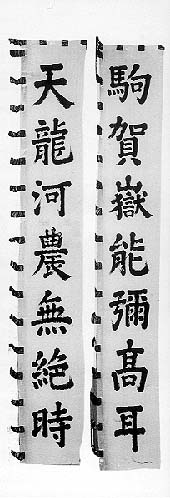 駒賀嶽能彌高耳
天龍河農無絶時